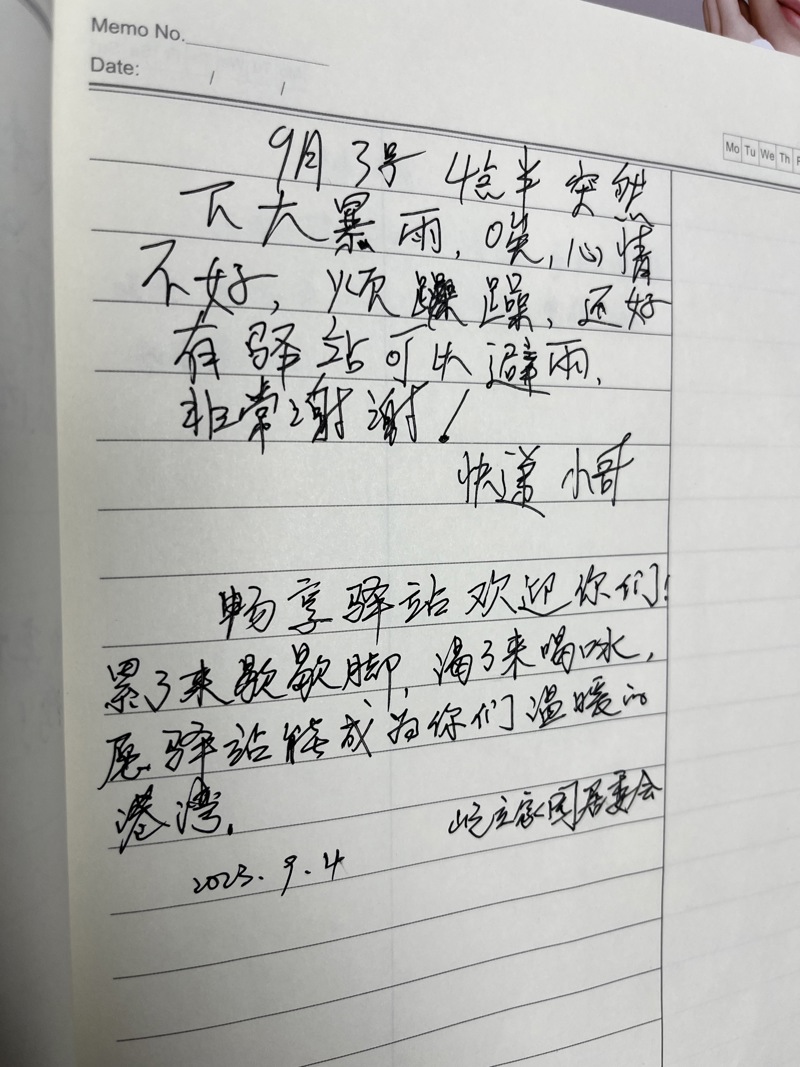 Memo No.
Date: / /
Mo Tu We Th F
9月3号 4点半突然
下大暴雨,唉,心情
不好,烦躁躁,还好
有驿站可以避雨,
非常谢谢!
快递小哥
畅享驿站欢迎你们!
累了来歇歇脚,渴了来喝口水,
愿驿站能成为你们温暖的
港湾。
屹立家园居委会
2023.9.4